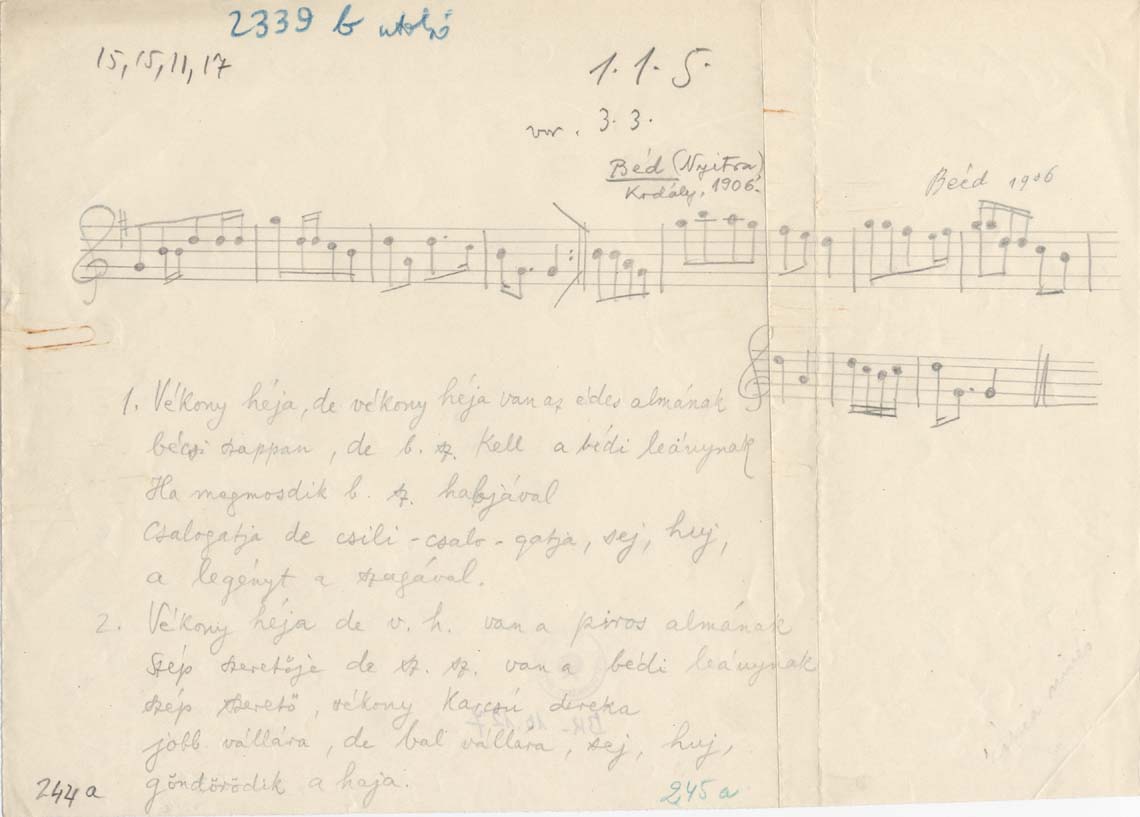 2339 b utolsó
15, 15, 11, 17
1. 1. 5.
var. 3. 3.
Béd (Nyitra)
Kodály, 1906.
Beéd 1906
1. Vékony héja, de vékony héja van az édes almának
bécsi szappan, de b. sz. kell a bédi leánynak
Ha megmosdik b. sz. habjával
Csalogatja de csili-csalo-gatja, sej, huj,
a legényt a szagával.
2. Vékony héja de v. h. van a piros almának
Szép szeretője de sz. sz. van a bédi leánynak
szép szerető, vékony karcsú dereka
jobb vállára, de bal vállára, sej, huj,
göndörödik a haja.
244a
245a